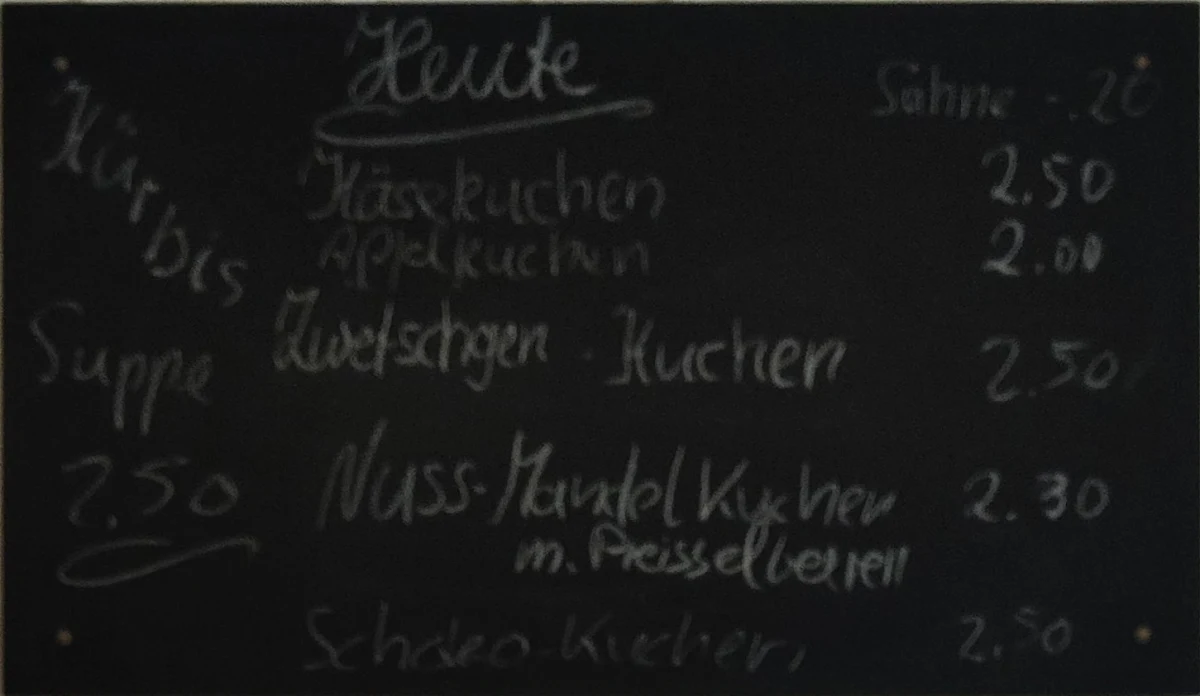 Heute
Sahne -.20
Käsekuchen 2.50
Apfelkuchen 2.00
Zwetschgen-Kuchen 2.50
Nuss-Mandel Kuchen 2.30
m. Preisselbeeren
Schoko-Kuchen 2.50
Kürbis
Suppe
2.50